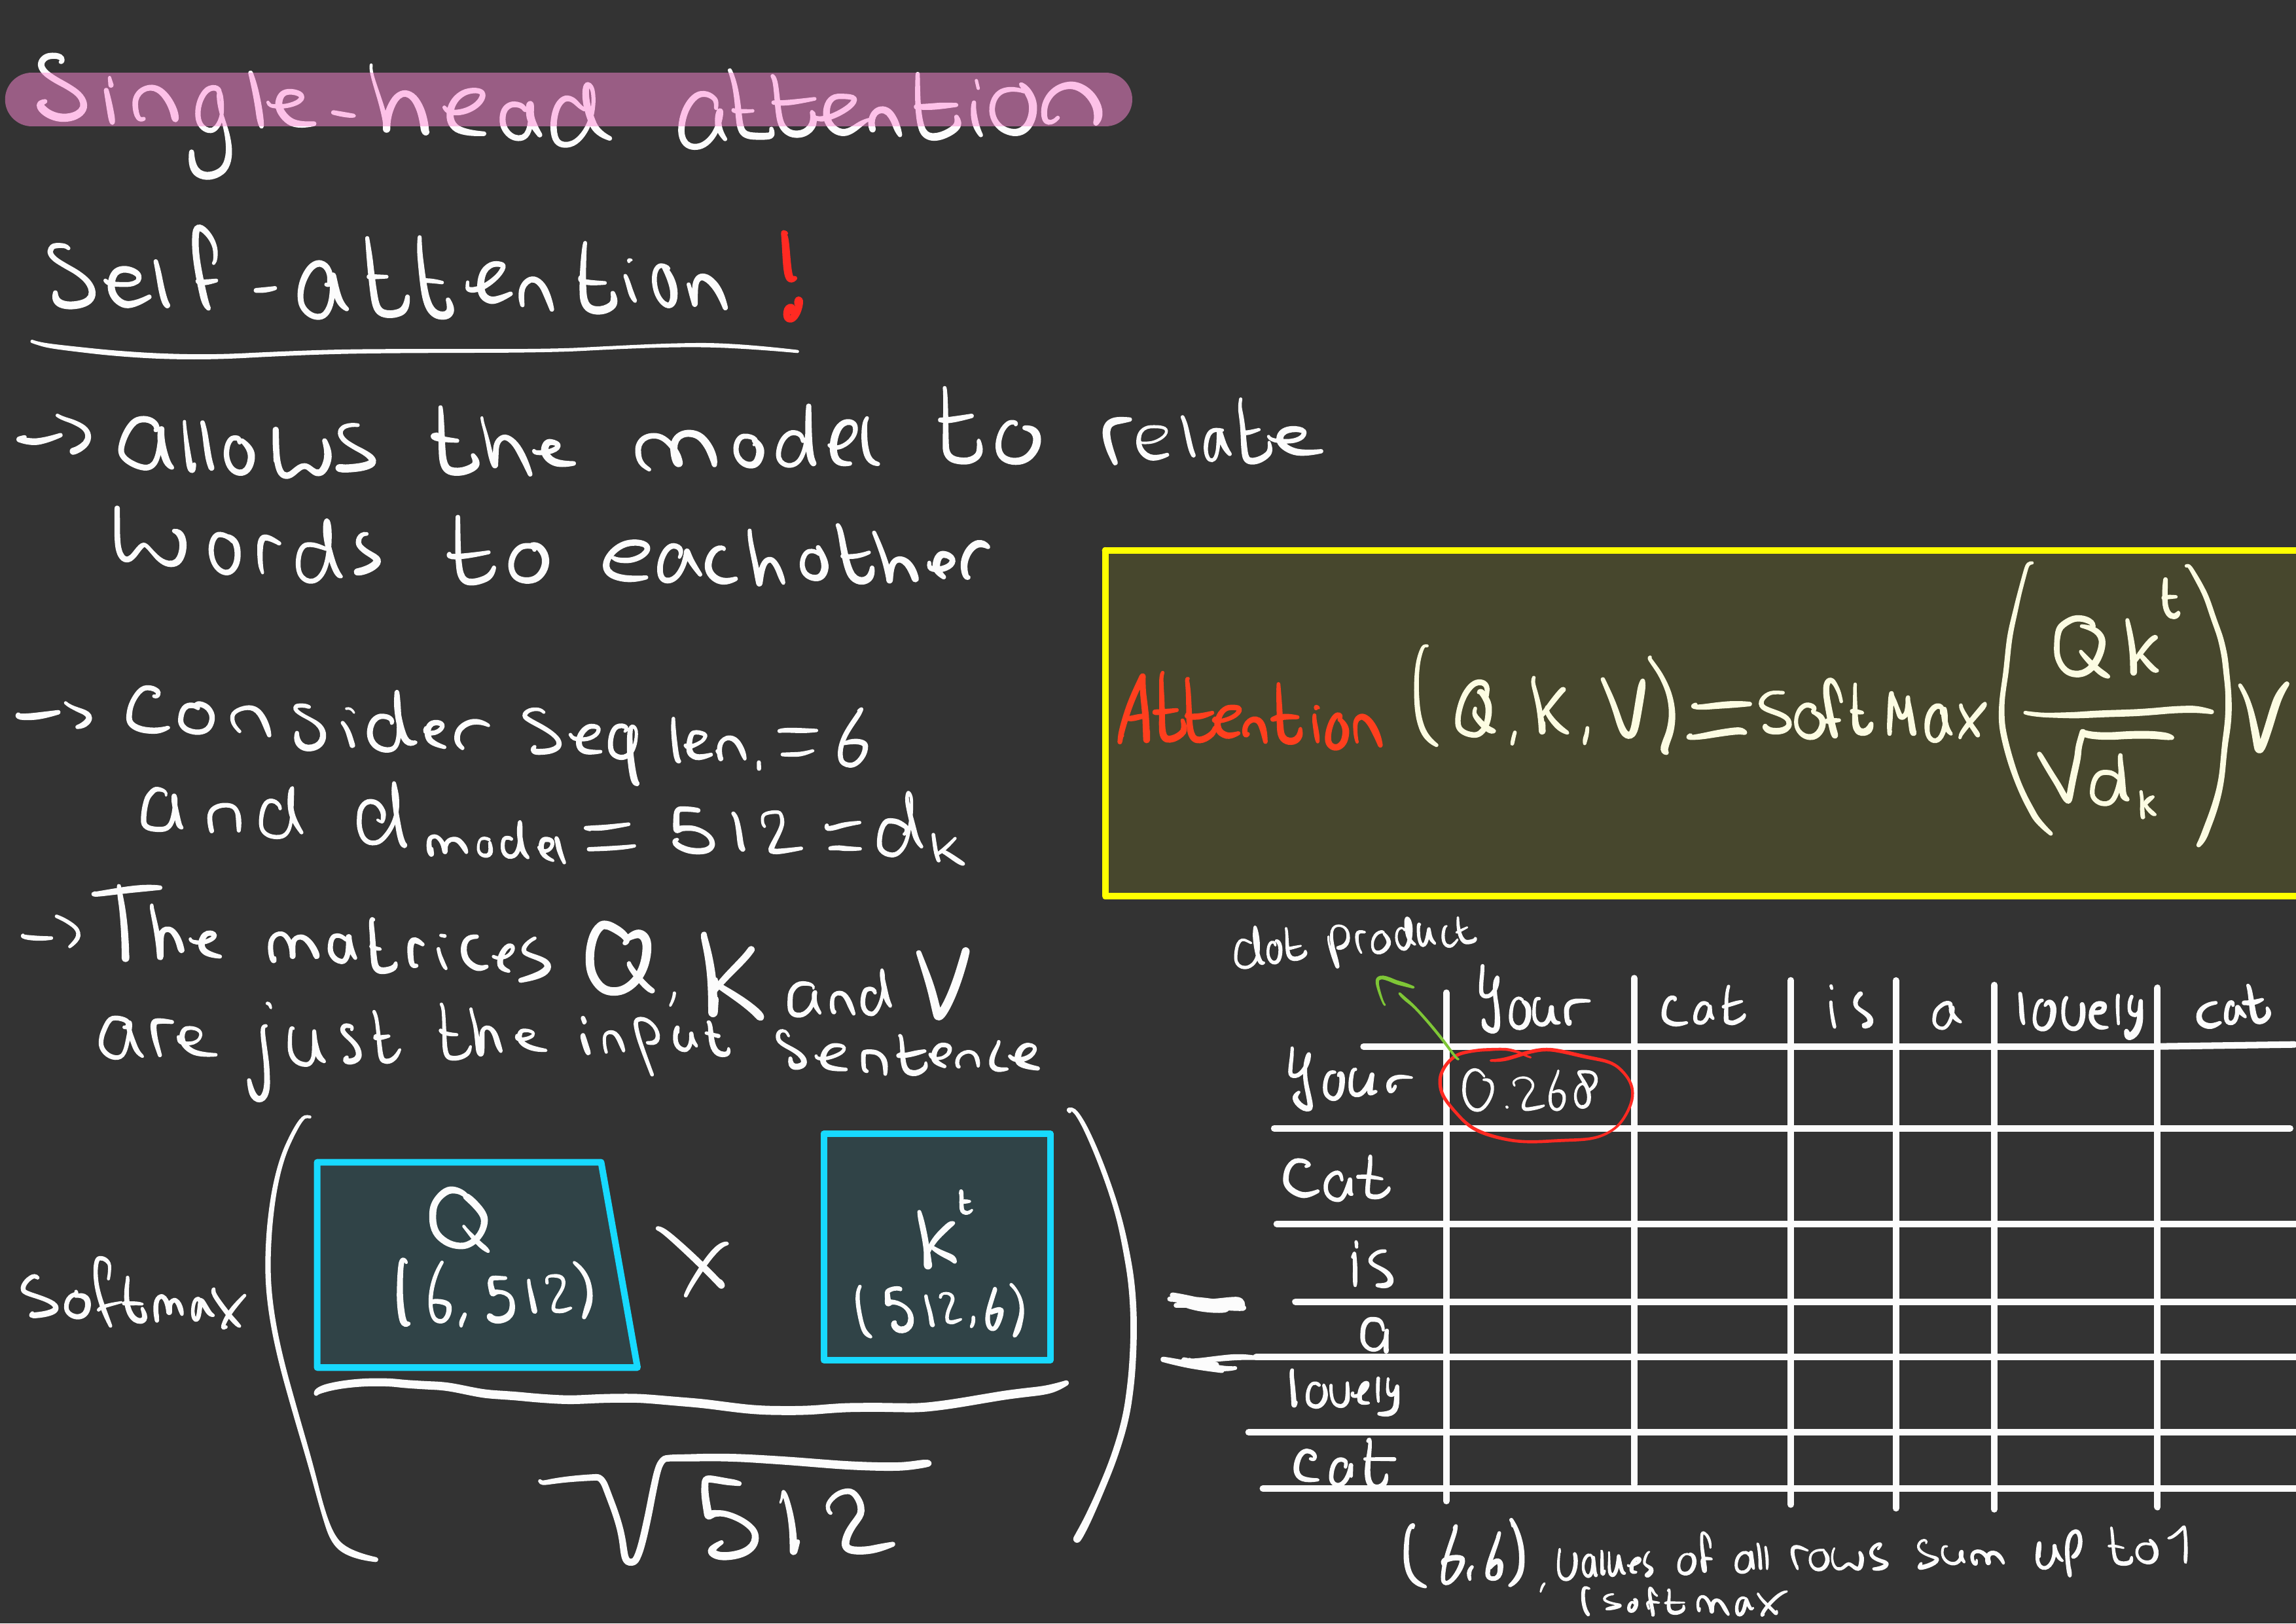 Single-head attention
Self-attention !
→ allows the model to relate
words to eachother
→ Consider seq len, = 6
and d model = 512 = dk
→ The matrices Q, K and V
are just the input sentence
Attention (Q, K, V) = SoftMax (Qk^t / √dk) V
softmax ( Q (6, 512) × K^t (512, 6) / √512 ) =
dot product
Your cat is a lovely cat
Your 0.268
Cat
is
a
lovely
cat
(6,6), values of all rows sum up to 1
(softmax